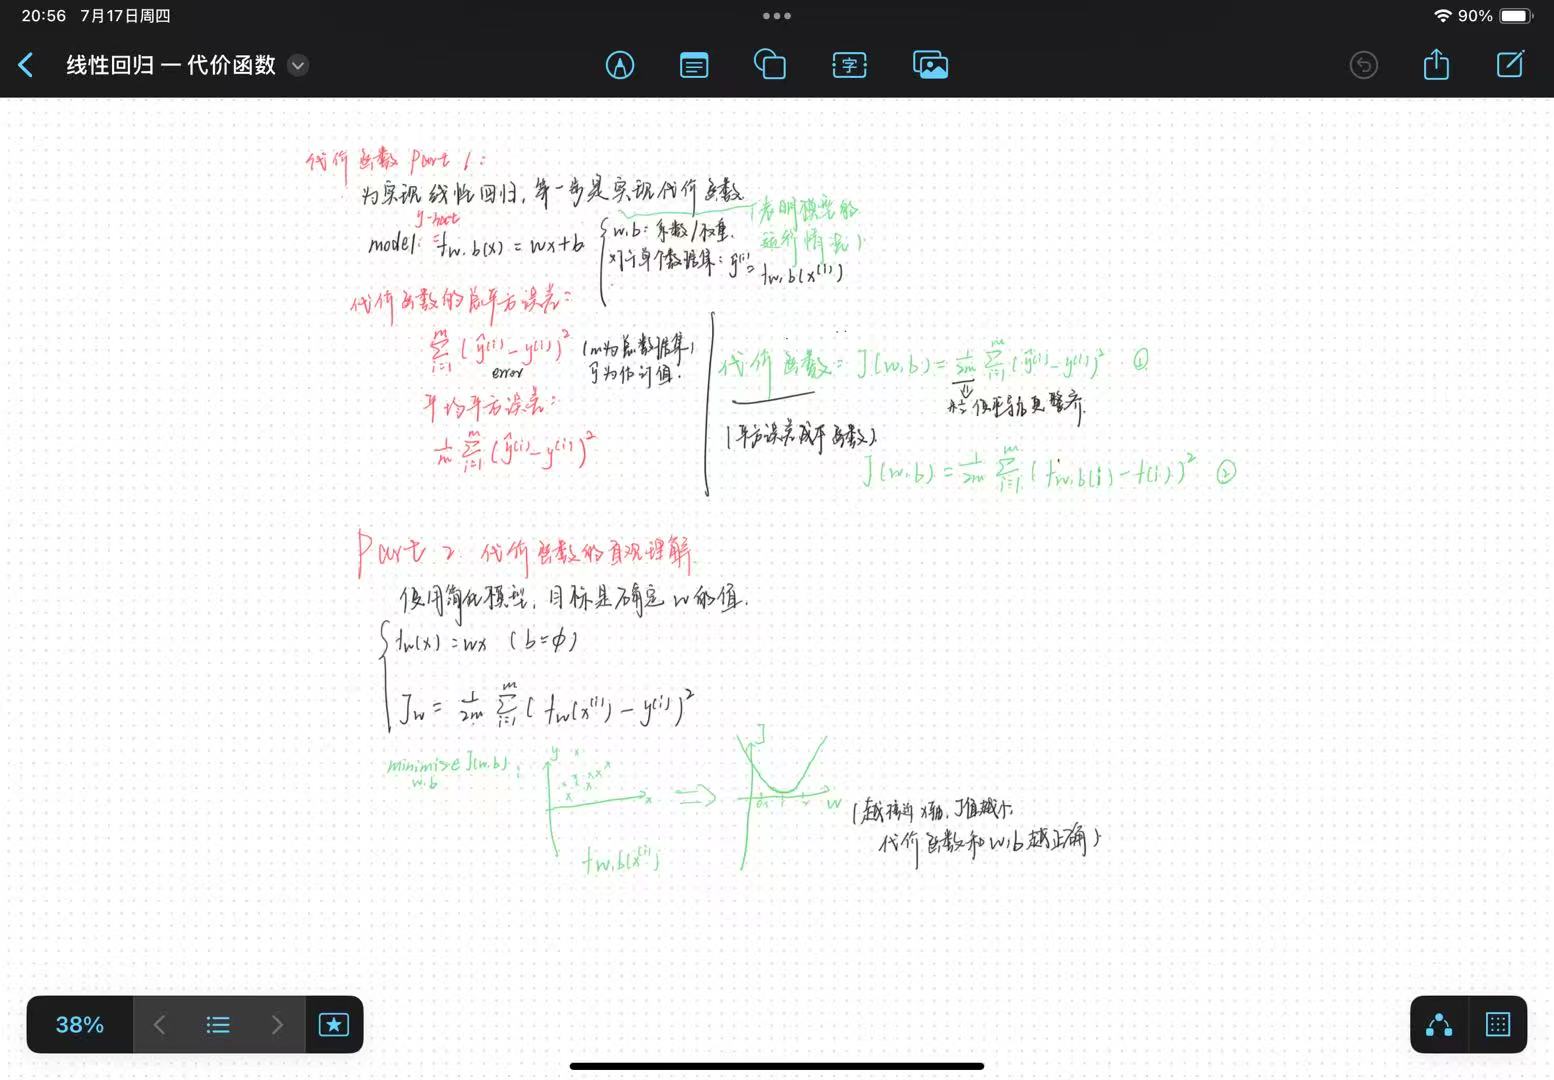 20:56 7月17日周四
90%
线性回归 — 代价函数
字
代价函数 Part 1:
为实现线性回归, 第一步是实现代价函数
(表明模型的
运行情况)
y-hat
model: f w,b(x) = wx+b
w,b: 系数/权重.
对于单个数据集: ŷ⁽ⁱ⁾ = f w,b(x⁽ⁱ⁾)
代价函数的总平方误差:
m∑i=1 (ŷ⁽ⁱ⁾ − y⁽ⁱ⁾)² (m为总数据集)
error ŷ为估计值.
平均平方误差:
1/m m∑i=1 (ŷ⁽ⁱ⁾ − y⁽ⁱ⁾)²
代价函数: J(w,b) = 1/2m m∑i=1 (ŷ⁽ⁱ⁾ − y⁽ⁱ⁾)² ①
使求导后更整齐.
(平方误差成本函数)
J(w,b) = 1/2m m∑i=1 (f w,b(i) − f(i))² ②
Part 2. 代价函数的直观理解
使用简化模型, 目标是确定 w 的值.
fw(x) = wx (b=ϕ)
Jw = 1/2m m∑i=1 (fw(x⁽ⁱ⁾) − y⁽ⁱ⁾)²
minimize J(w,b):
w,b
y
x
f w,b(x⁽ⁱ⁾)
J
w
(越接近 x轴, J值越小,
代价函数和 w,b 越正确)
38%